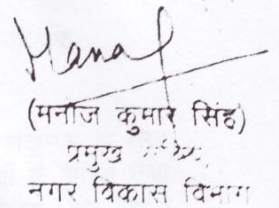 (मनोज कुमार सिंह)
प्रमुख
नगर विकास विभाग